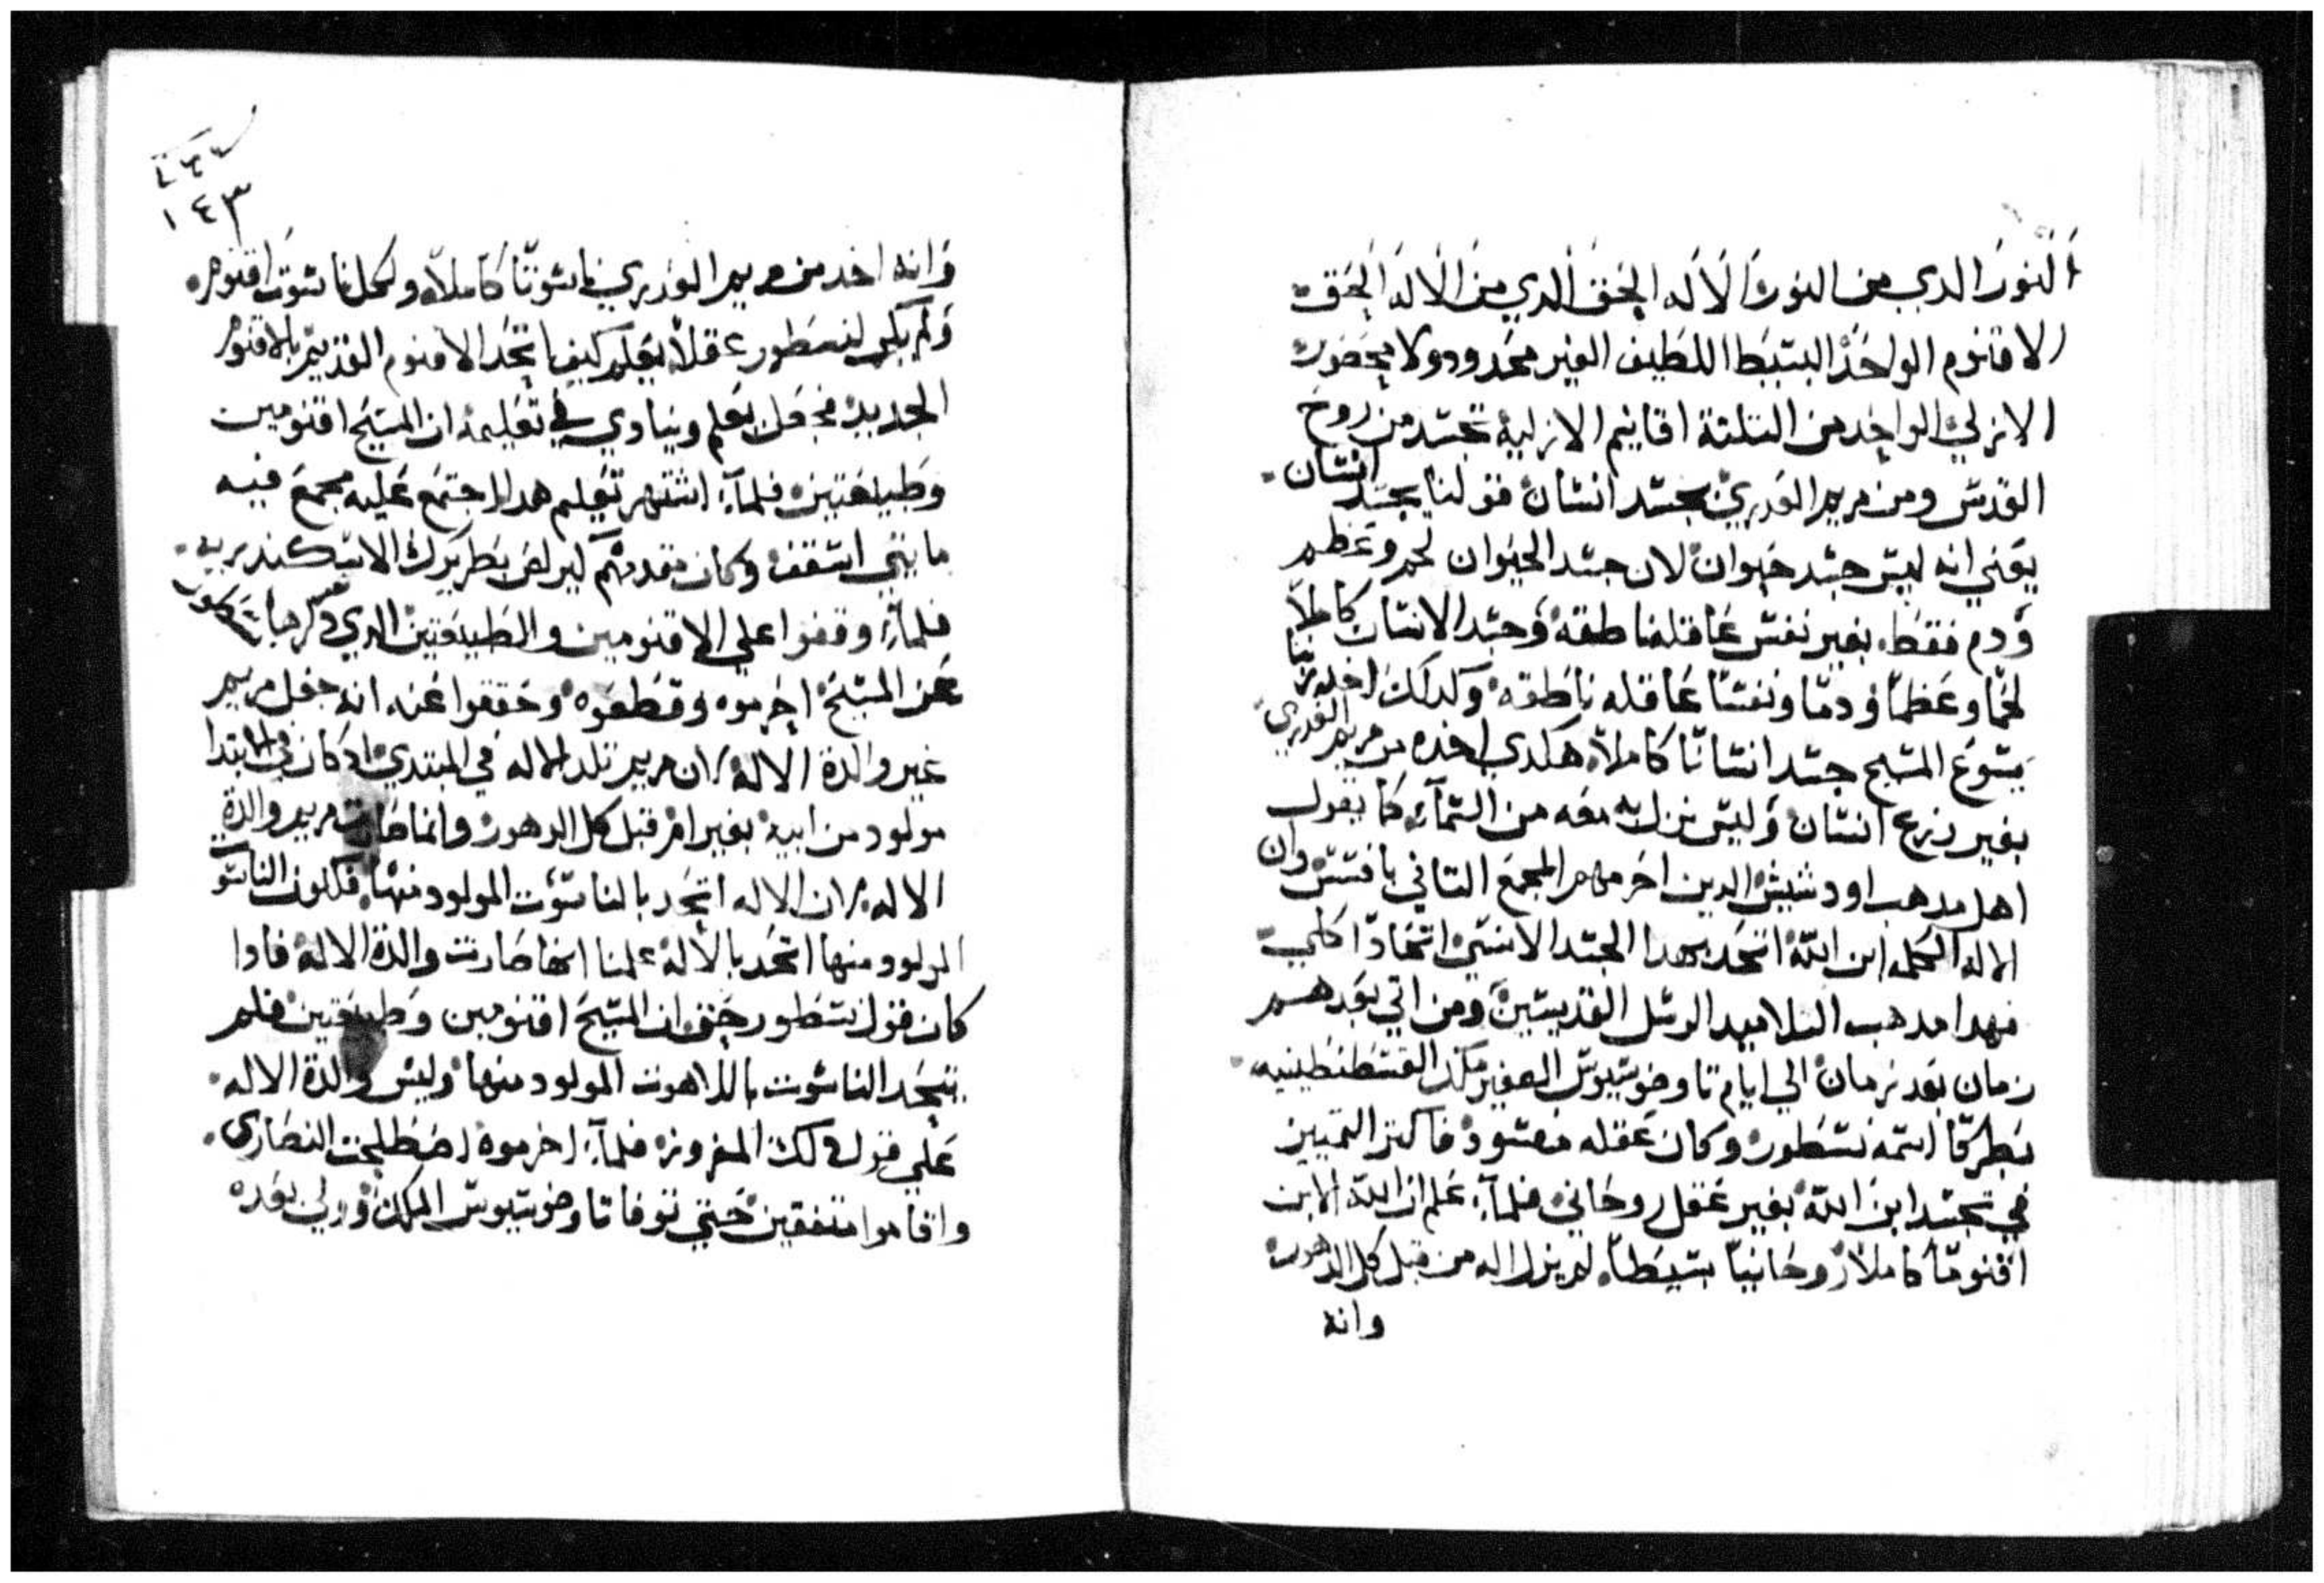 النور الدي من النور الاله الحق الدي من الاله الحق
الاقنوم الواحد البسيط اللطيف الغير محدود ولا محصور
الازلي الواحد من التلتة اقانيم الازلية تجسد من روح
القدس ومن مريم العدري بجسد انسان فقولنا بجسد انسان
يعني انه ليس جسد حيوان لان جسد الحيوان لحم وعظم
ودم فقط بغير نفس عاقله ناطقه وجسد الانسان كاملا
لحما وعظما ودما ونفسا عاقله ناطقه وكدلك اخد ربنا
يسوع المسيح جسد انسانا كاملا هكدي اخده من مريم العدري
بغير زرع انسان وليس نزل به معه من السماء كما يقول
اهل مدهب اودشيش الدين احرمهم المجمع التاني بافسس وان
الاله الكلمه ابن الله اتحد بهدا الجسد الانسي اتحادا كلي
فهدا مدهب التلاميد الرسل القديسين ومن اتي بعدهم
زمان بعد زمان الي ايام تاوضوسيوس الصغير ملك القسطنطينيه
بطركا اسمه نسطور وكان عقله مفسود فاكتر التمييز
في تجسد ابن الله بغير عقل روحاني فلما علم ان الله الابن
اقنوما كاملا روحانيا بسيطا لم يزل اله من قبل كل الدهور
وانه
١٤٣
وانه اخد من مريم العدري ناسوتا كاملا ولكل ناسوت اقنوم
ولم يكن لنسطور عقلا يعلم كيف اتحد الاقنوم القديم بالاقنوم
الجديد فجعل يعلم وينادي في تعليمه ان المسيح اقنومين
وطبيعتين فلما اشتهر تعلم هدا اجتمع عليه مجمع فيه
مايتي اسقف وكان مقدمهم كيرلص بطريرك الاسكندريه
فلما وقفوا علي الاقنومين والطبيعتين الدي دكرها نسطور
عن المسيح احرموه وقطعوه وحققوا عنه انه جعل مريم
غير والدة الاله لان مريم تلد الاله في المبتدي اد كان في الابتدا
مولود من ابيه بغير ام قبل كل الدهور وانما صارت مريم والدة
الاله لان الاله اتحد بالناسوت المولود منها فلكون الناسوت
المولود منها اتحد بالاله علمنا انها صارت والدة الاله فادا
كان قول نسطور حق ان المسيح اقنومين وطبيعتين فلم
يتحد الناسوت باللاهوت المولود منها وليس والدة الاله
علي قول دلك المفروز فلما احرموه اصطلحت النصارى
واقاموا متفقين حتي توفا تاوضوسيوس الملك وولي بعده